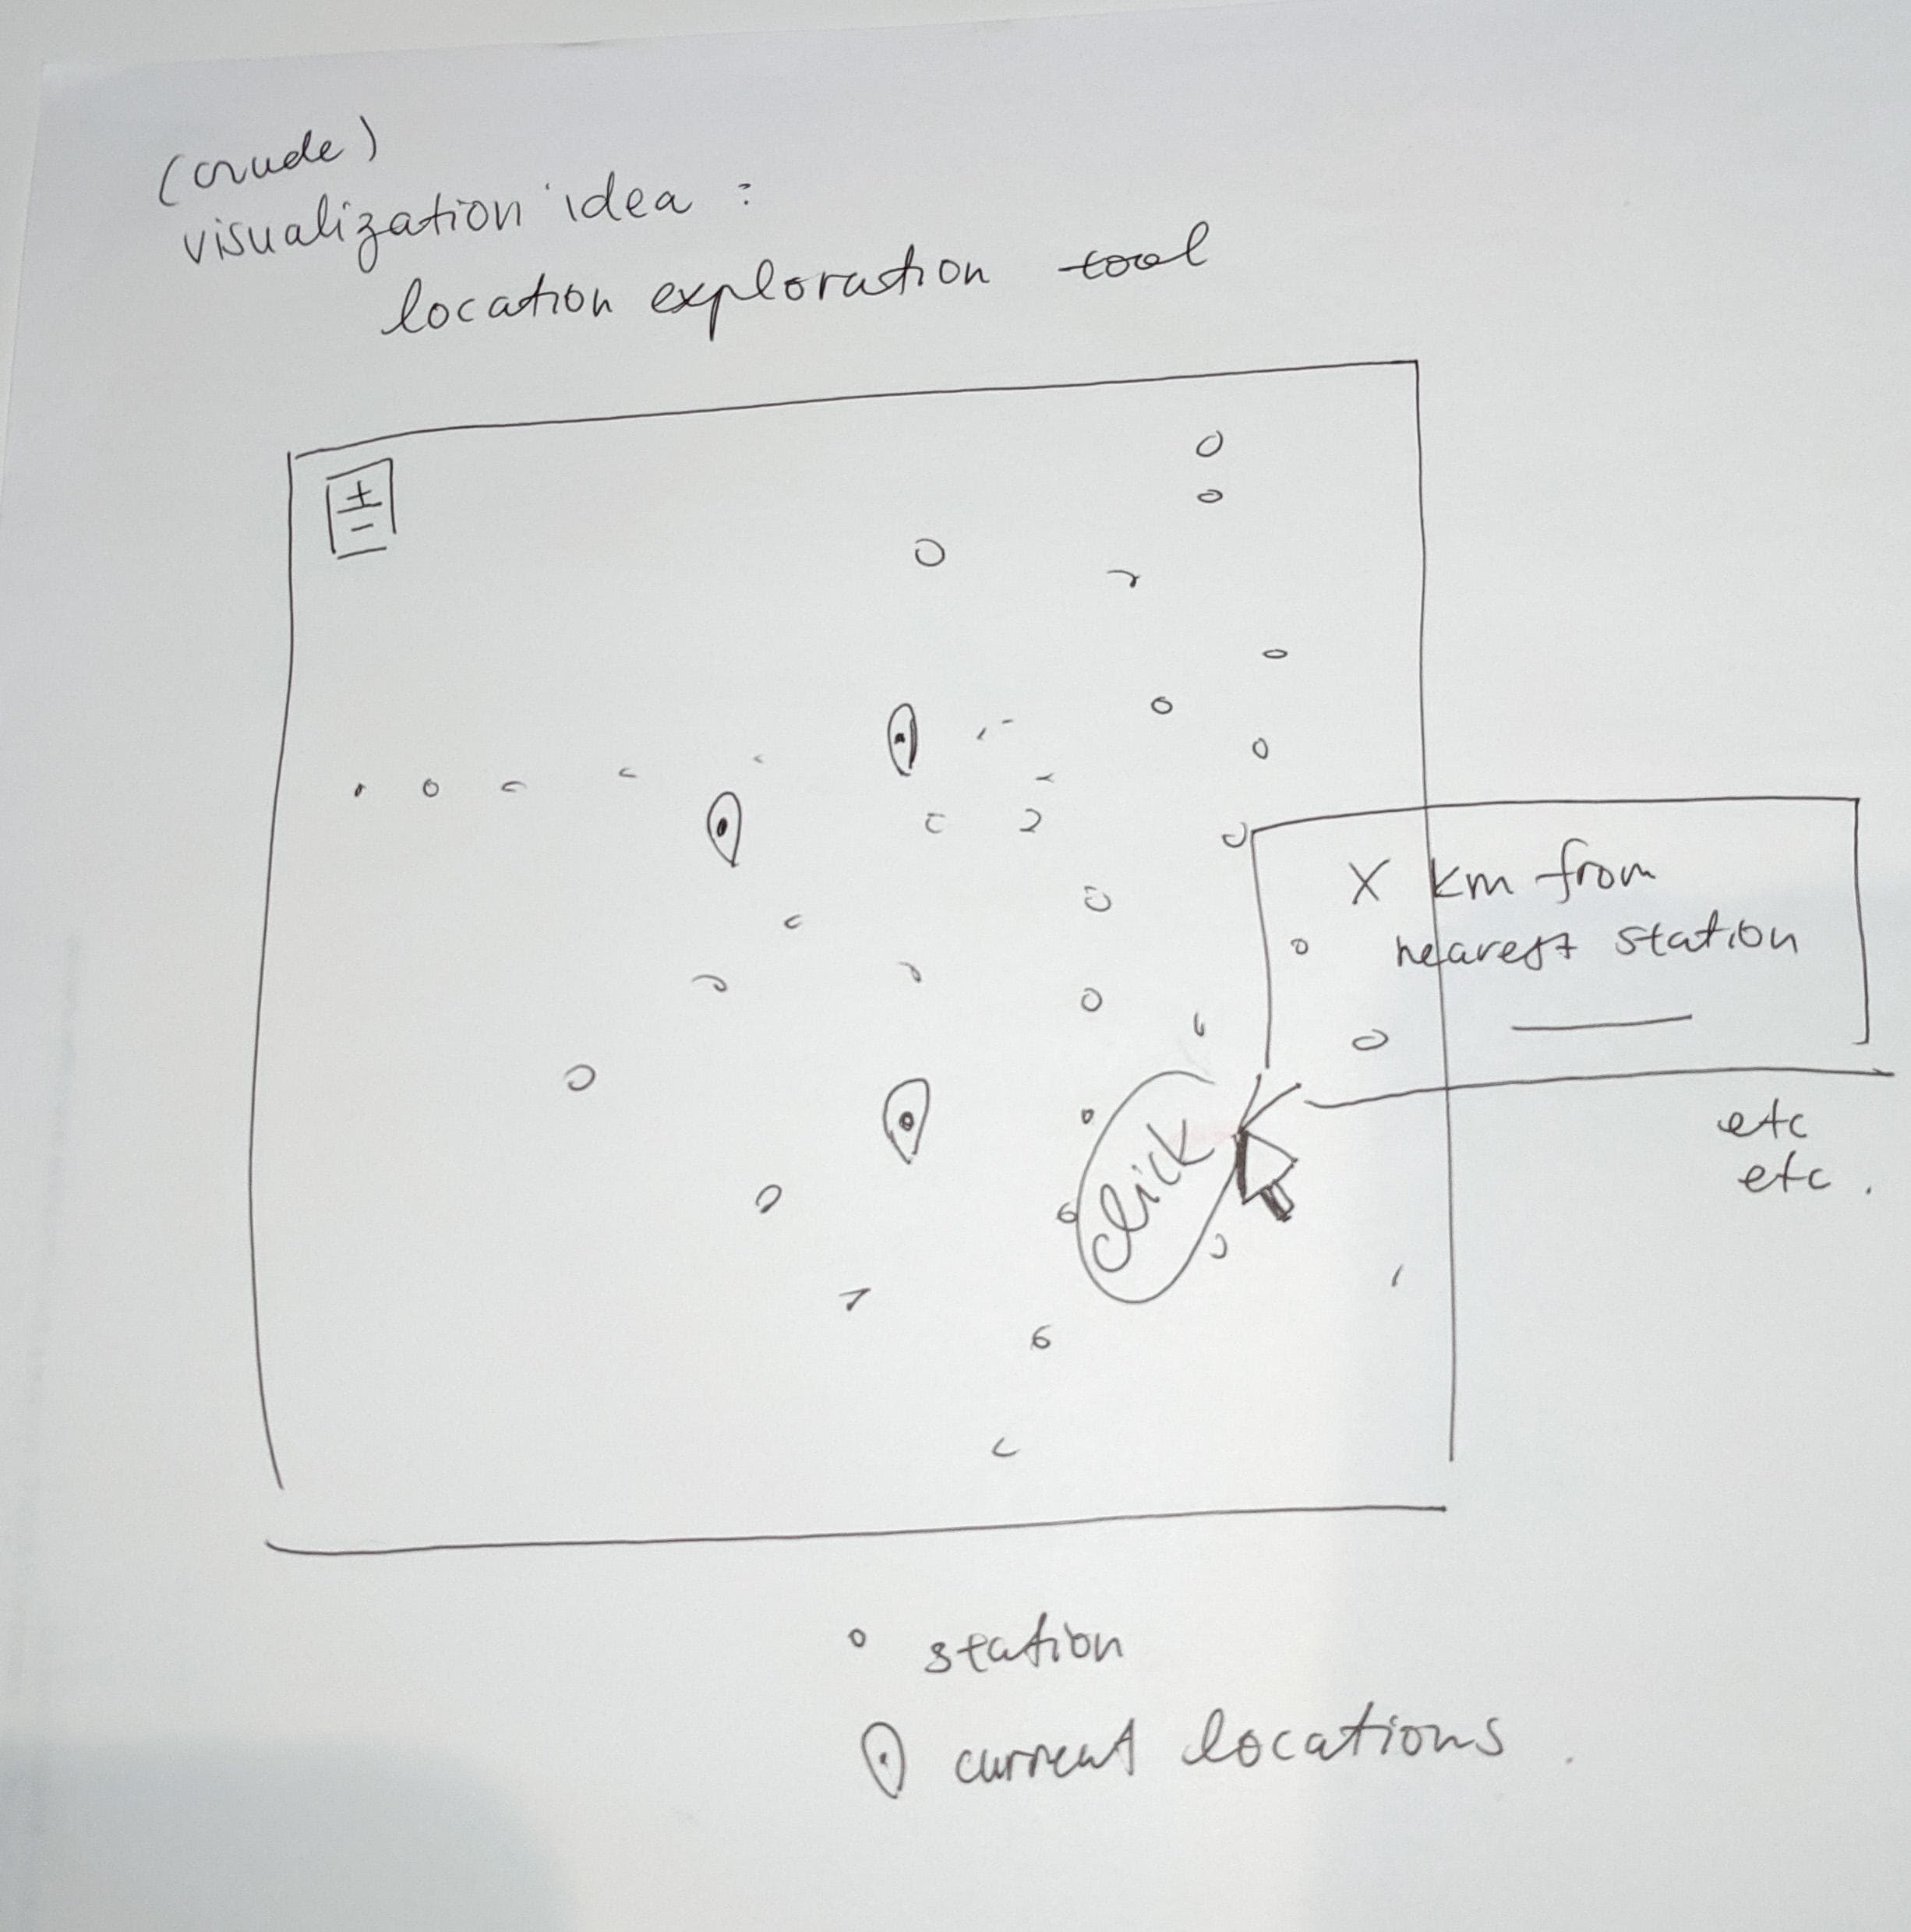 (crude)
visualization idea :
location exploration tool
+
-
X km from
nearest station
click
etc
etc.
station
current locations.